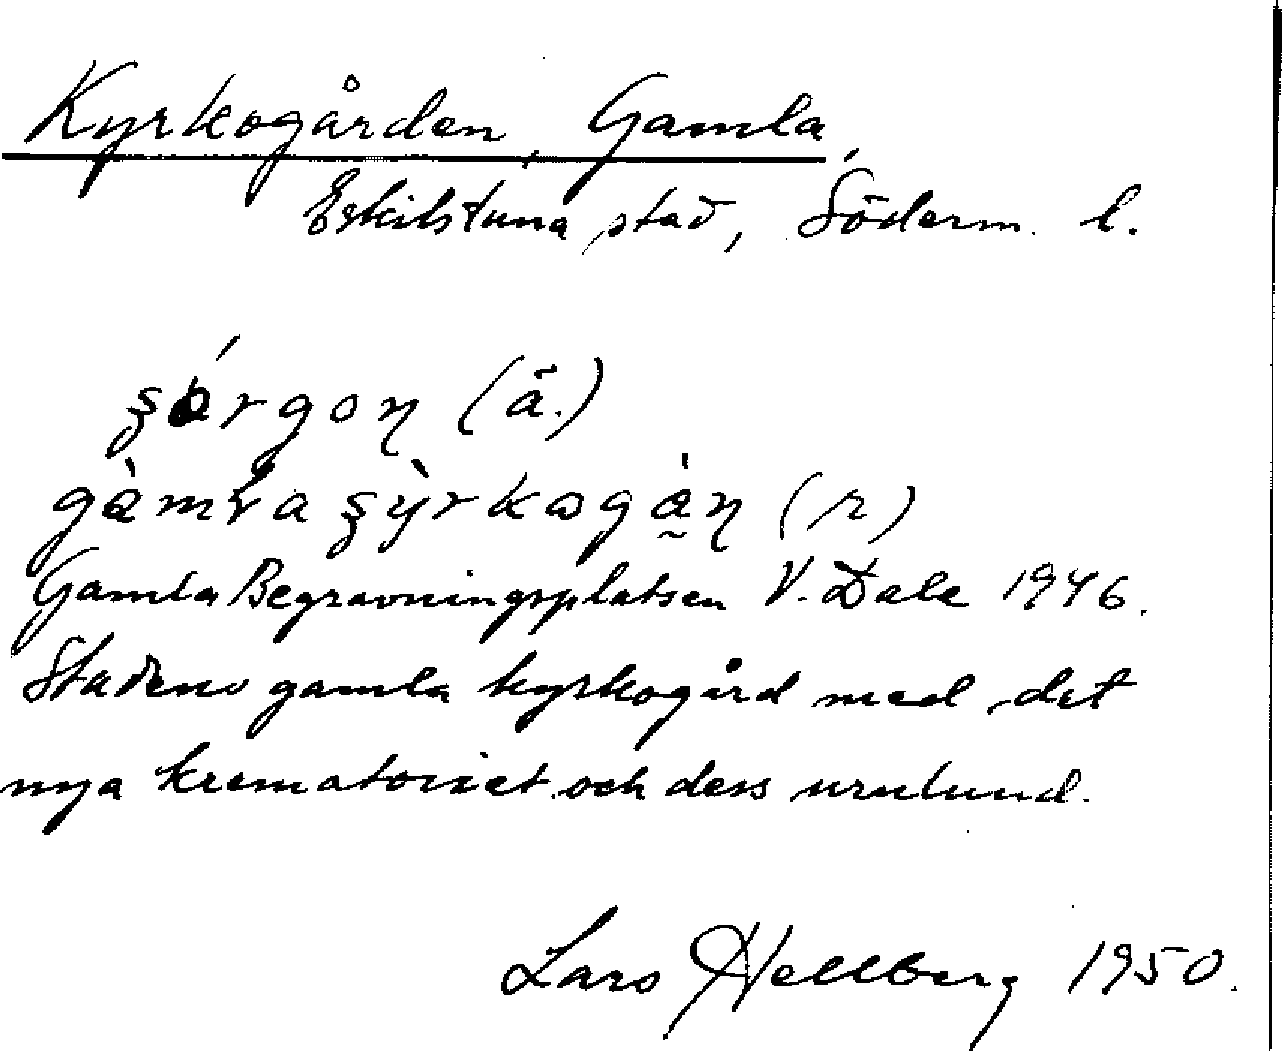 Kyrkogården, Gamla,
Eskilstuna stad, Söderm. l.
(ä.)
(r)
Gamla Begravningsplatsen V. Dale 1946.
Stadens gamla kyrkogård med det
nya krematoriet och dess urnlund.
Lars Hellberg 1950.